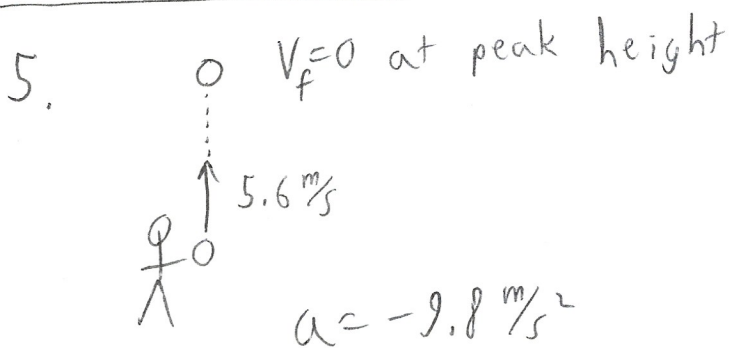 5.
V_f=0 at peak height
5.6 m/s
a = -9.8 m/s²